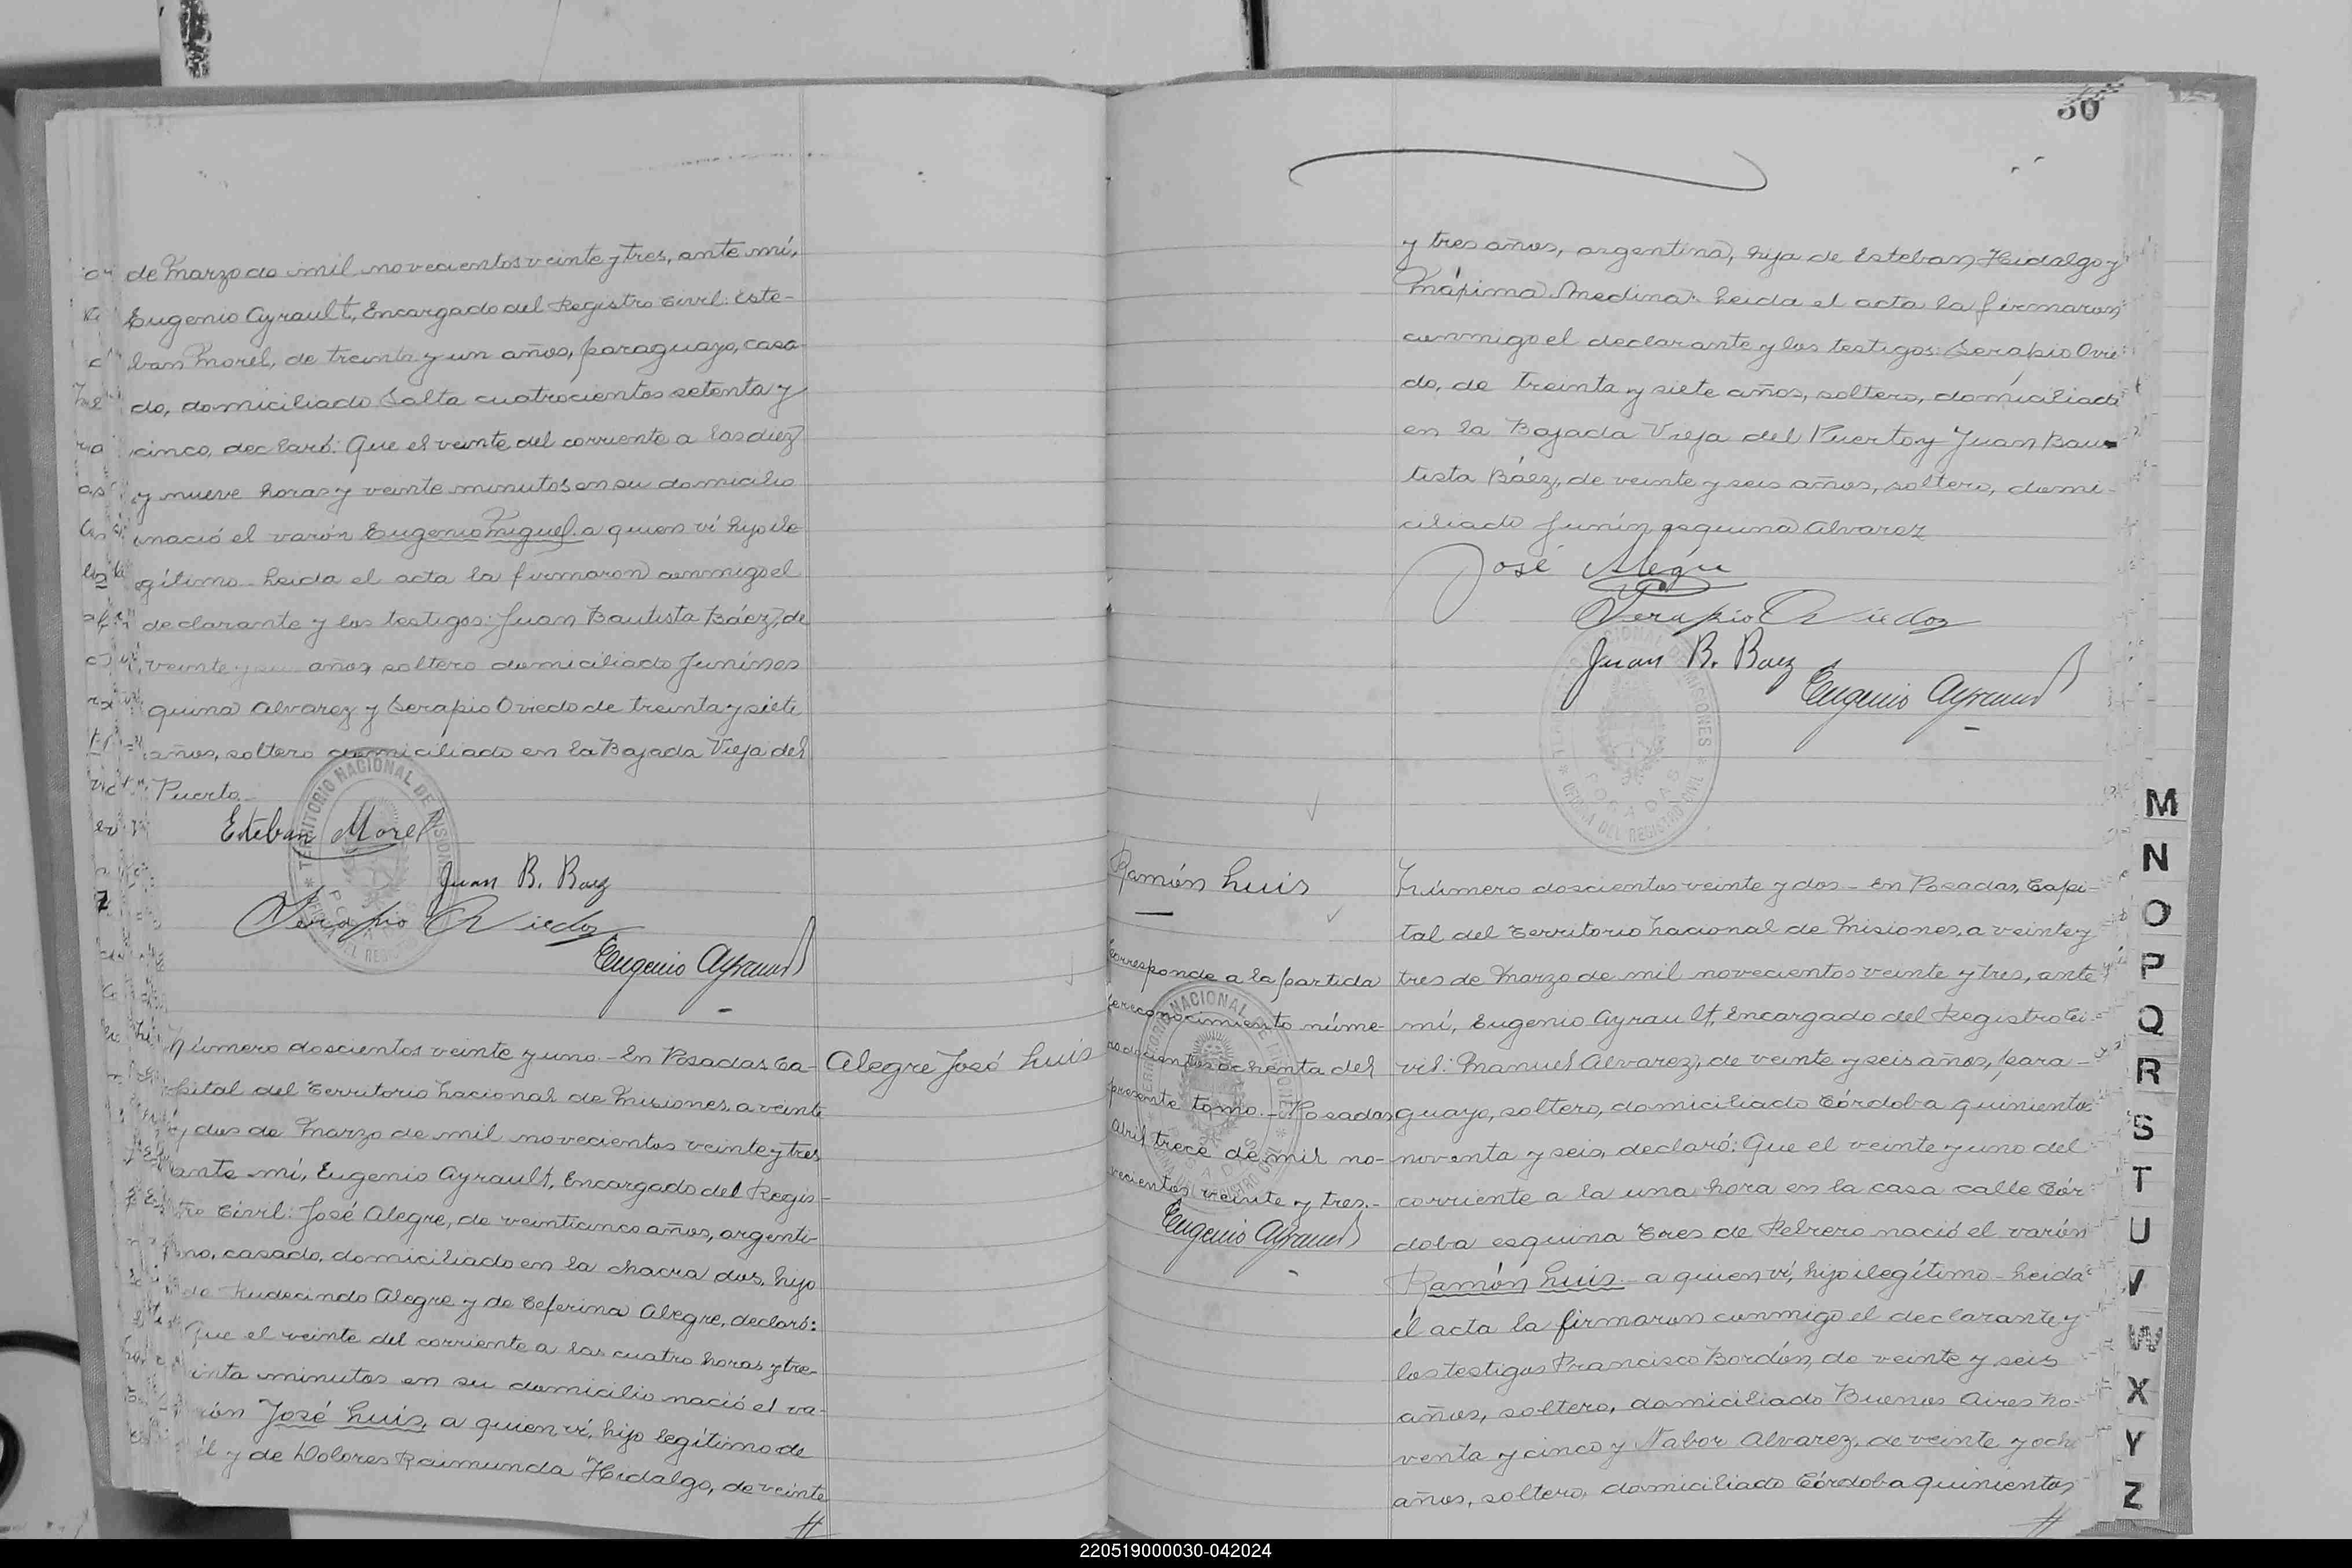 de Marzo de mil novecientos veinte y tres, ante mí,
Eugenio Ayrault, Encargado del Registro Civil: Este-
ban Morel, de treinta y un años, paraguayo, casa-
do, domiciliado Salta cuatrocientos setenta y
cinco, declaró: Que el veinte del corriente a las diez
y nueve horas y veinte minutos en su domicilio
nació el varón Eugenio Miguel a quien ví hijo ile-
gítimo - Leida el acta la firmaron conmigo el
declarante y los testigos: Juan Bautista Báez, de
veinte y seis años, soltero domiciliado Junín es
quina Alvarez y Serapio Oviedo de treinta y siete
años, soltero domiciliado en la Bajada Vieja del
Puerto.
Esteban Morel
Juan B. Baez
Serapio Oviedo
Eugenio Ayrault
Número doscientos veinte y uno. - En Posadas Ca-
Alegre José Luis
pital del Territorio Nacional de Misiones, a veinte
y dos de Marzo de mil novecientos veinte y tres
ante mí, Eugenio Ayrault, Encargado del Regis-
tro Civil: José Alegre, de veinticinco años, argenti-
no, casado, domiciliado en la chacra dos, hijo
de Rudecindo Alegre y de Ceferina Alegre, declaró:
Que el veinte del corriente a las cuatro horas y tre-
inta minutos en su domicilio nació el va-
rón José Luis, a quien ví, hijo legítimo de
él y de Dolores Raimunda Hidalgo, de veinte
//
50
y tres años, argentina, hija de Esteban Hidalgo y
Máxima Medina. Leida el acta la firmaron
conmigo el declarante y los testigos: Serapio Ovie-
do, de treinta y siete años, soltero, domiciliado
en la Bajada Vieja del Puerto y Juan Bau-
tista Báez, de veinte y seis años, soltero, domi-
ciliado Junín esquina Alvarez
José Alegre
Serapio Oviedo
Juan B. Baez
Eugenio Ayrault
Ramón Luis
Corresponde a la partida
de reconocimiento núme-
ro doscientos ochenta del
presente tomo. - Posadas,
Abril trece de mil no-
vecientos veinte y tres. -
Eugenio Ayrault
Número doscientos veinte y dos - En Posadas, Capi-
tal del Territorio Nacional de Misiones, a veinte y
tres de Marzo de mil novecientos veinte y tres, ante
mí, Eugenio Ayrault, Encargado del Registro Ci-
vil: Manuel Alvarez, de veinte y seis años, para-
guayo, soltero, domiciliado Córdoba quinientos
noventa y seis, declaró: Que el veinte y uno del
corriente a la una hora en la casa calle Cór-
doba esquina Tres de Febrero nació el varón
Ramón Luis - a quien ví, hijo ilegítimo - Leida
el acta la firmaron conmigo el declarante y
los testigos Francisco Bordón, de veinte y seis
años, soltero, domiciliado Buenos Aires no-
venta y cinco y Nabor Alvarez, de veinte y ocho
años, soltero, domiciliado Córdoba quinientos
//
TERRITORIO NACIONAL DE MISIONES
POSADAS
OFICINA DEL REGISTRO CIVIL
M
N
O
P
Q
R
S
T
U
V
W
X
Y
Z
220519000030-042024